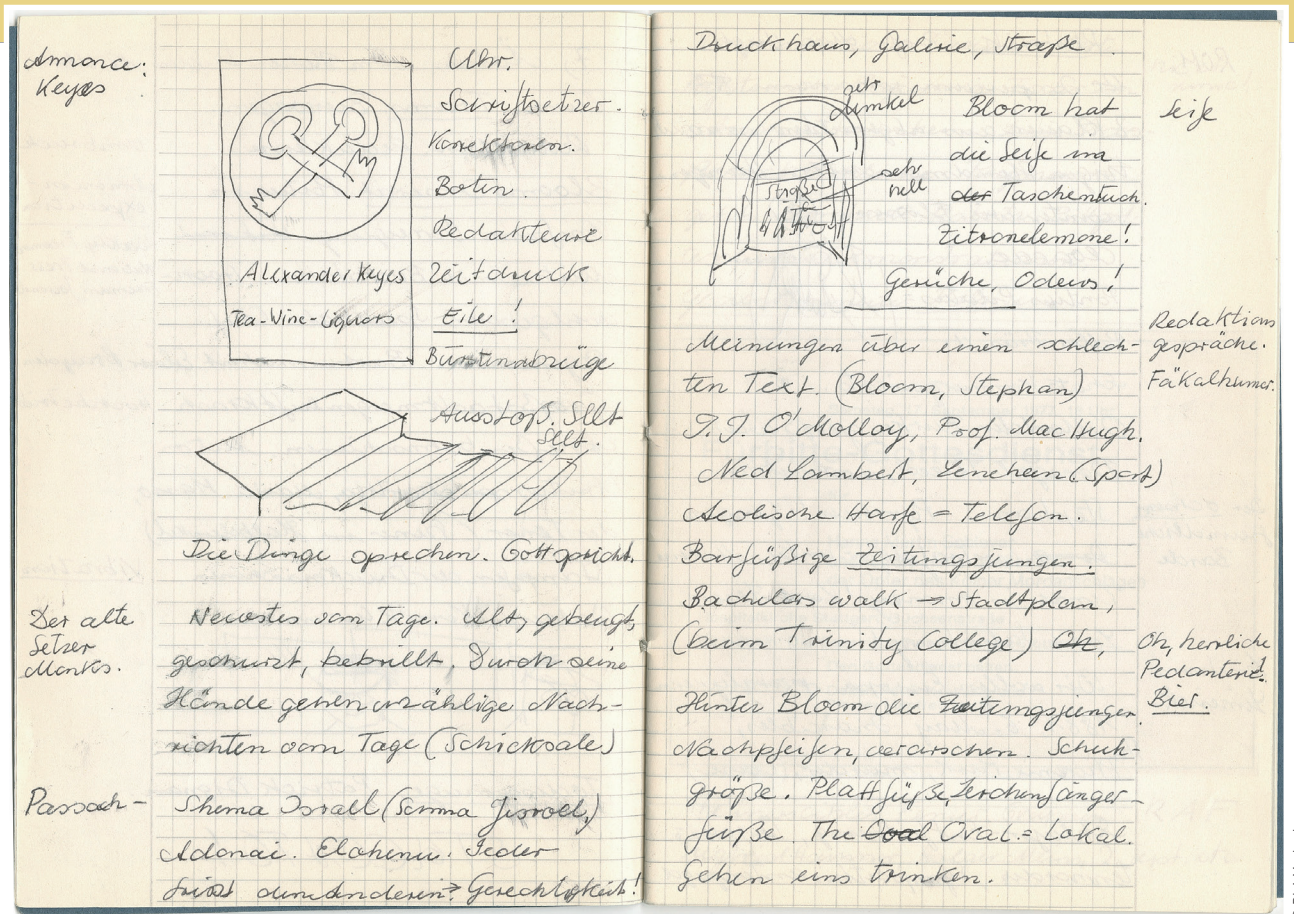 Annonce:
Keyes
Uhr.
Schriftsetzer.
Korrektoren.
Boten.
Redakteure
Alexander Keyes
Zeitdruck
Tea-Wine-Liquors
Eile!
Bürstenabzüge
Ausstoß. Sllt
Sllt.
Die Dinge sprechen. Gott spricht.
Der alte
Setzer
Monks.
Neuestes vom Tage. Alt, gebeugt,
geschürzt, bebrillt. Durch seine
Hände gehen unzählige Nach-
richten vom Tage (Schicksale)
Passach-
Shema Israel (Schma Jisroel,)
Adonai. Elohenu. Jeder
frisst den Anderen? Gerechtigkeit!
Druckhaus, Galerie, Straße
sehr
dunkel
Bloom hat
Seife
die Seife im
sehr
hell
Straße
der Taschentuch.
Zitronelemone!
Gerüche, Odeurs!
Redaktions
gespräche.
Fäkalhumor.
Meinungen über einen schlech-
ten Text. (Bloom, Stephan)
J.J. O'Molloy, Prof. MacHugh.
Ned Lambert, Lenehan (Sport)
Aeolische Harfe = Telefon.
Barfüßige Zeitungsjungen.
Bachelors walk → Stadtplan,
(beim Trinity College) Oh,
Oh, herrliche
Pedanterie!
Bier.
Hinter Bloom die Zeitungsjungen.
Nachpfeifen, verarschen. Schuh-
größe. Plattfüße, Lerchenfänger-
füße. The Oval Oval = Lokal.
Gehen eins trinken.